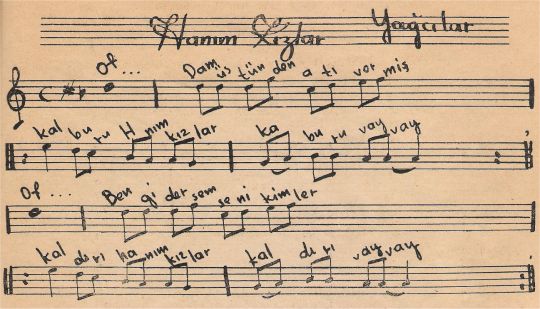 Hanım Kızlar Yağcılar
Of... Dam üs tün den a tı vor mış
kal bu ru H nım kız lar ka bu ru vay vay
Of... Ben gi der sem se ni kim ler
kal dı rı ha nım kız lar kal dı rı vay vay